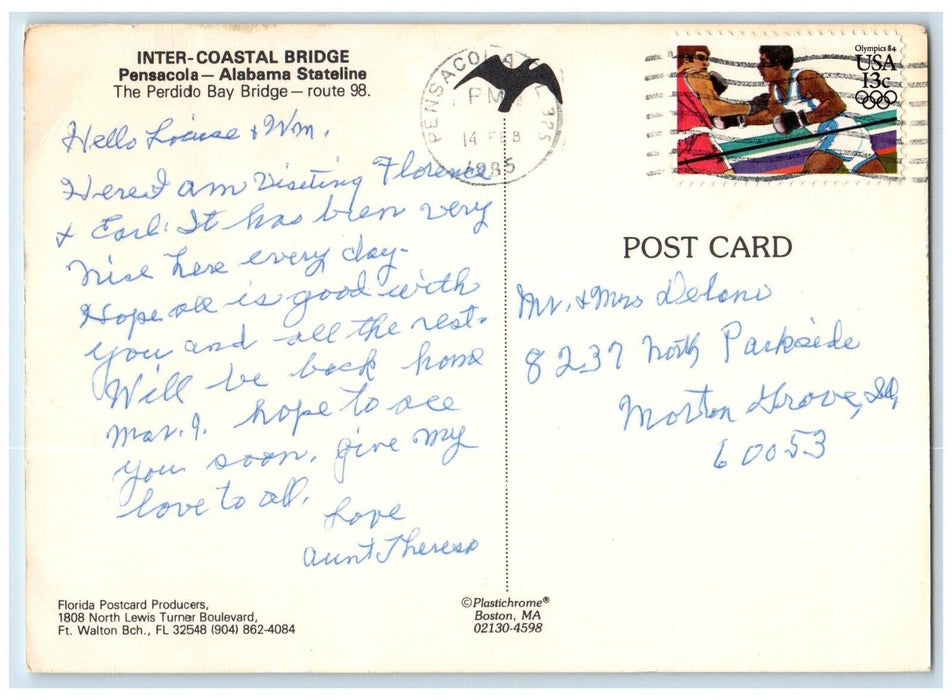 INTER-COASTAL BRIDGE
Pensacola — Alabama Stateline
The Perdido Bay Bridge — route 98.
Hello Louise + Wm.
Here I am visiting Florence
& Earl. It has been very
nise here every day.
Hope all is good with
you and all the rest.
Will be back home
Mar. 9. hope to see
you soon. give my
love to all.
Love
Aunt Theresa
Florida Postcard Producers,
1808 North Lewis Turner Boulevard,
Ft. Walton Bch., FL 32548 (904) 862-4084
©Plastichrome®
Boston, MA
02130-4598
PENSACOLA FL 325
PM
14 FEB
1985
Olympics 84
USA
13c
POST CARD
Mr. & Mrs Delano
8237 North Parkside
Morton Grove,
60053